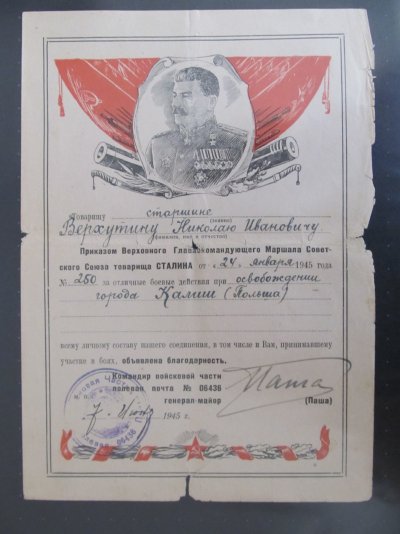 Товарищу старшине
(звание)
Верхутину Николаю Ивановичу
(фамилия, имя и отчество)
Приказом Верховного Главнокомандующего Маршала Совет-
ского Союза товарища СТАЛИНА от «24» января 1945 года
№ 250 за отличные боевые действия при освобождении
города Калиш (Польша)
всему личному составу нашего соединения, в том числе и Вам, принимавшему
участие в боях, объявлена благодарность.
Командир войсковой части
полевая почта № 06436
генерал-майор
Паша
(Паша)
7. Июня 1945 г.
Полевая
06436